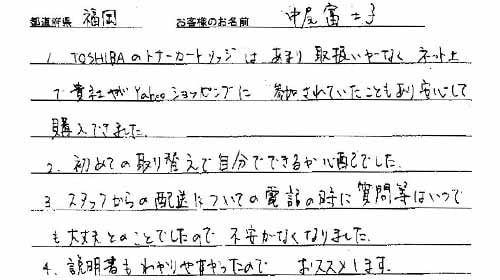 都道府県 福岡 お客様のお名前 中尾富士子
1. TOSHIBAのトナーカートリッジは あまり 取扱いがなく ネット上
で 貴社がYahooショッピングに 参加されていたこともあり 安心して
購入できました。
2. 初めての取り替えで自分でできるか心配でした。
3. スタッフからの配送についての電話の時に質問等はいつで
も大丈夫とのことでしたので 不安がなくなりました。
4. 説明書もわかりやすかったので おススメします。